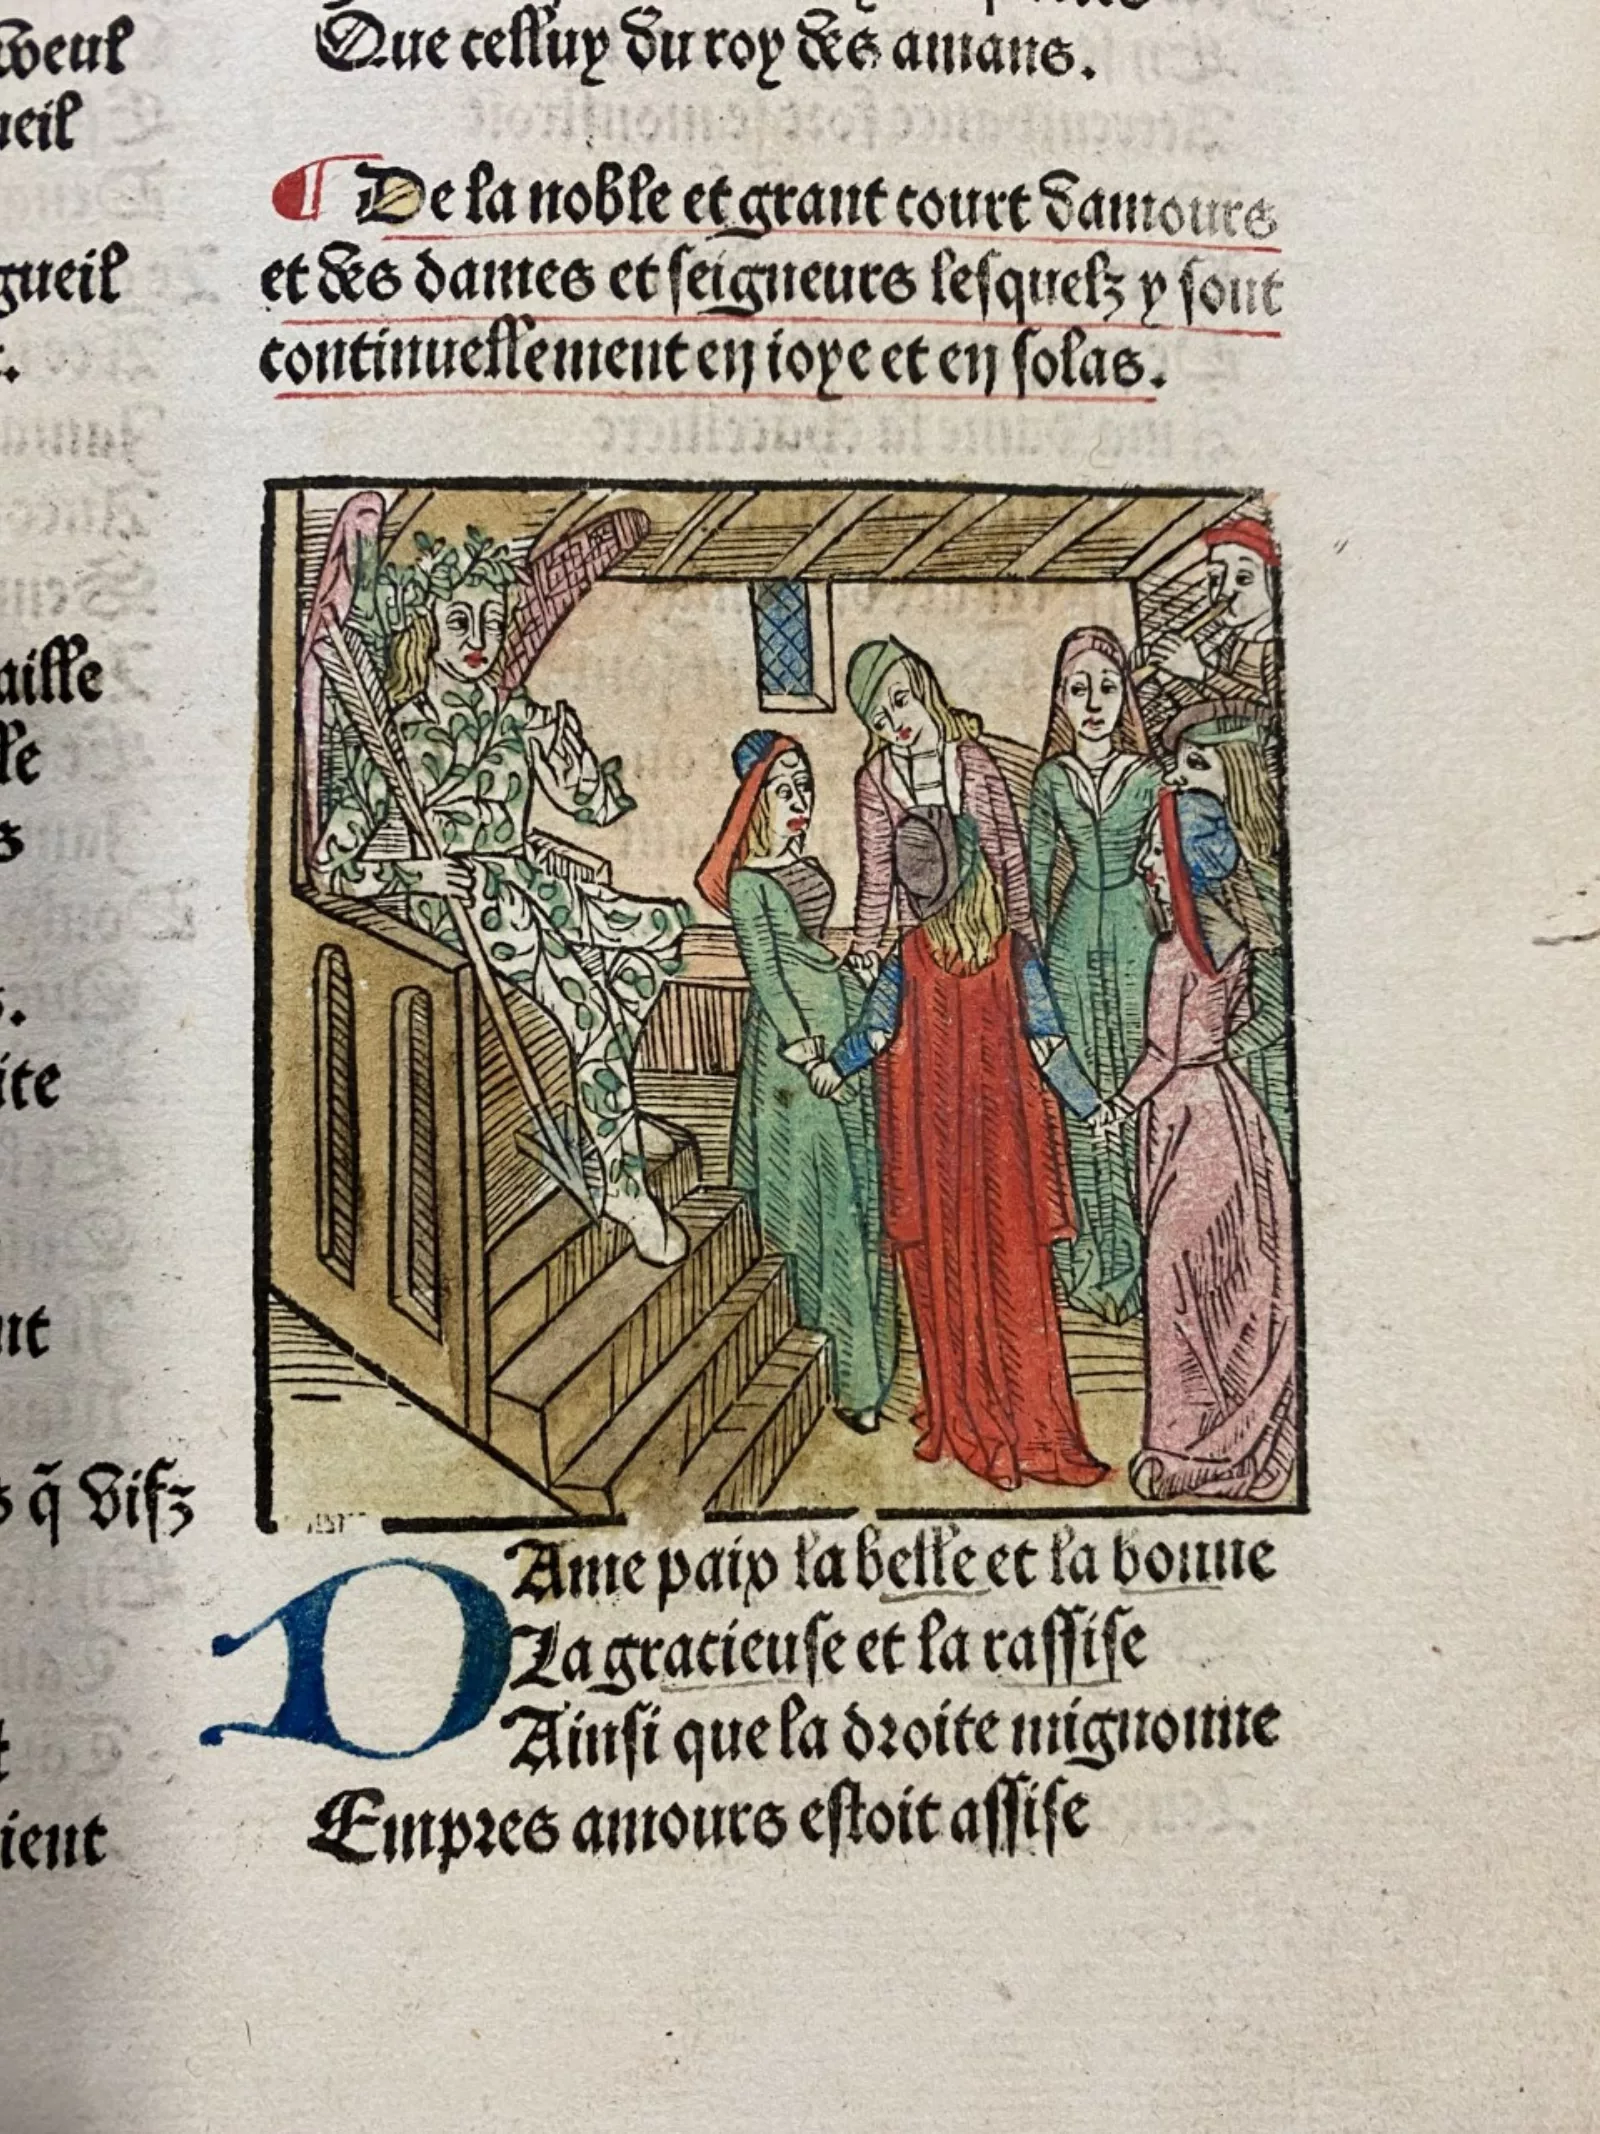 weul
ueil
gueil
aille
lle
s
s.
ite
nt
s q̃ vifz
t
ient
Que celluy du roy des amans.
¶ De la noble et grant court damours
et des dames et seigneurs lesquelz y sont
continuellement en ioye et en solas.
DAme paix la belle et la bonne
La gracieuse et la rassise
Ainsi que la droite mignonne
Empres amours estoit assise